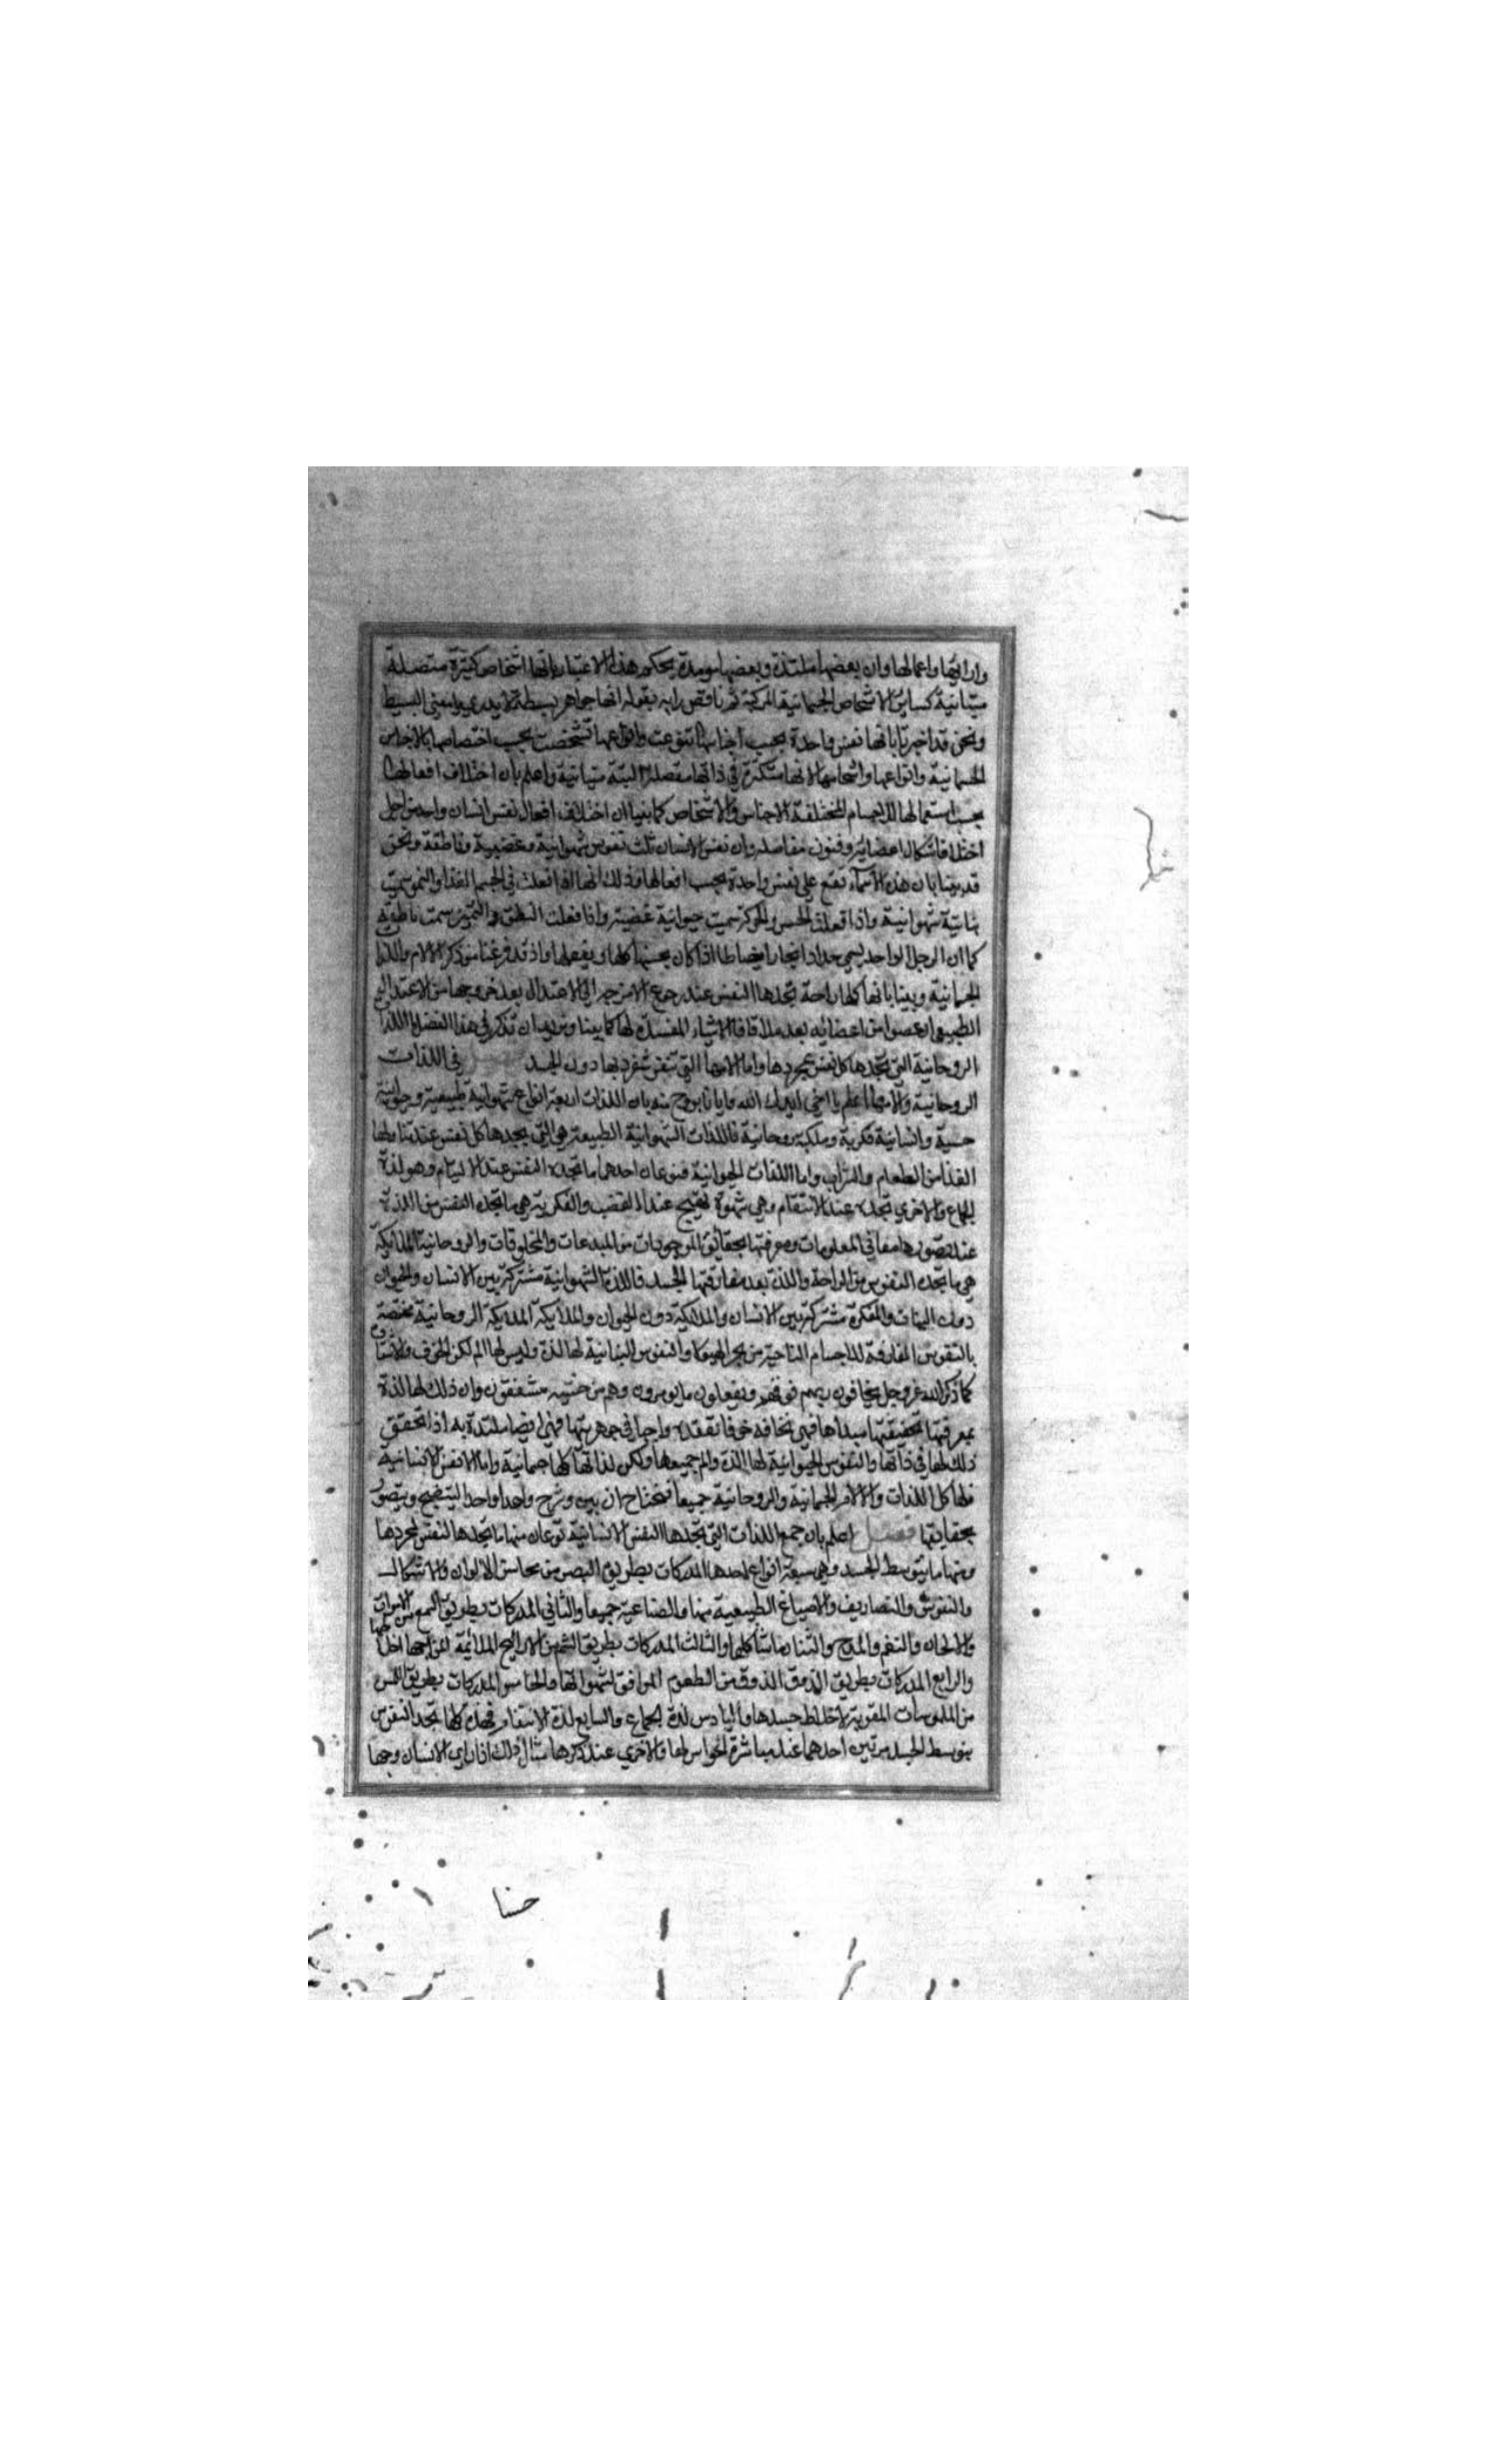 وارائها واعمالها وان بعضها ملتذة وبعضها مولمة يحكم هذا الاعتبار بانها اشخاص كثيرة متصلة
متباينة كساير الاشخاص الجسمانية المركبة ثم ناقض رايه بقوله انها جواهر بسيطة لا يدري ما معنى البسيط
ونحن قد اخبرنا بانها نفس واحدة بحسب اجناسها تنوعت وانواعها تشخصت بحسب اختصاصها بالاجناس
الجسمانية وانواعها واشخاصها لا انها متكثرة في ذاتها منفصلة البتة متباينة واعلم بان اختلاف افعالها
بحسب استعمالها للاجسام المختلفة الاجناس والاشخاص كما بنيا ان اختلاف افعال نفس انسان واحد من اجل
اختلاف اشكال اعضائه وفنون مفاصله وان نفس الانسان ثلث نفوس شهوانية وغضبية وناطقة ونحن
قد بينا بان هذه الاسماء تقع على نفس واحدة بحسب افعالها وذلك انها اذا فعلت في الجسم الغذا والنمو سميت
نباتية شهوانية واذا فعلت الحس والحركة سميت حيوانية غضبية واذا فعلت النطق والتميز سميت ناطقة
كما ان الرجل الواحد يسمى حدادا نجارا خياطا اذا كان يحسنها كلها ويفعلها واذ قد فرغنا من ذكر الالام واللذات
الجسمانية وبينا بانها كلها راحة تجدها النفس عند رجوع المزاج الى الاعتدال بعد خروجها من الاعتدال
الطبيعي او عضو من اعضائه بعد ملاقاة الاشياء المفسدة لها كما بينا ونريد ان نذكر في هذا الفصل اللذات
الروحانية التي تجدها كل نفس بمجردها واما الامها التي تنفرد بها دون الجسد فصل في اللذات
الروحانية والامها اعلم يا اخي ايدك الله وايانا بروح منه بان اللذات اربعة انواع شهوانية طبيعية وحيوانية
حسية وانسانية فكرية وملكية روحانية فاللذات الشهوانية الطبيعة هي التي يجدها كل نفس عند تناولها
الغذا من الطعام والشراب واما اللذات الحيوانية فنوعان احدهما ما تجده النفس عند الالتيام وهو لذة
الجماع والاخري تجده عند الانتقام وهي شهوة تهيج عند الغضب والفكرية هي ما تجده النفس من اللذة
عند تصورها معاني المعلومات ومعرفتها بحقائق الموجودات من المبدعات والمخلوقات والروحانية الملائكية
هي ما تجده النفوس من الراحة واللذة بعد مفارقتها الجسد فاللذة الشهوانية مشتركة بين الانسان والحيوان
دون النبات والفكرة مشتركة بين الانسان والملائكة دون الحيوان والملائكية الروحانية مختصة
بالنفوس المفارقة للاجسام الناجية من بحر الهيولى والنفوس النباتية لها لذة وليس لها الم لكن الخوف والاشتياق
كما ذكر الله عز وجل يخافون ربهم من فوقهم ويفعلون ما يؤمرون وهم من خشيته مشفقون وان ذلك لها لذة
بمعرفتها بحقيقتها مبداها فهي تخافه خوفا تعتقده واجبا في جوهريتها فهي ايضا ملتذة به اذا تحقق
ذلك لها في ذاتها والنفوس الحيوانية لها لذة والم جميعها ولكن لذاتها كلها جسمانية واما الانفس الانسانية
فلها كل اللذات والالام الجسمانية والروحانية جميعا فنحتاج ان نبين ونشرح واحدا واحدا ليتضح ويتصور
بحقايقها فصل اعلم بان جمع اللذات التي تجدها النفس الانسانية نوعان منها ما تجدها النفس بمجردها
ومنها ما بتوسط الجسد وهي سبعة انواع احدها المدركات بطريق البصر من محاسن الالوان والاشكال
والنقوش والتصاريف والاصباغ الطبيعية منها والصناعية جميعا والثاني المدركات بطريق السمع من الاصوات
والالحان والنغم والمدح والثنا وما شاكلها والثالث المدركات بطريق الشم من الاراييح الملائمة لمزاجها
والرابع المدركات بطريق الذوق من الطعوم الموافقة لشهواتها والخامس المدركات بطريق اللمس
من الملموسات المقوية لاخلاط جسدها والسادس لذة الجماع والسابع لذة الانتقام فهذه كلها تجد النفوس
بتوسط الجسد مرتين احدهما عند مباشرة الحواس لها والاخري عند ذكرها مثال ذلك اذا راى الانسان وجها
حسنا